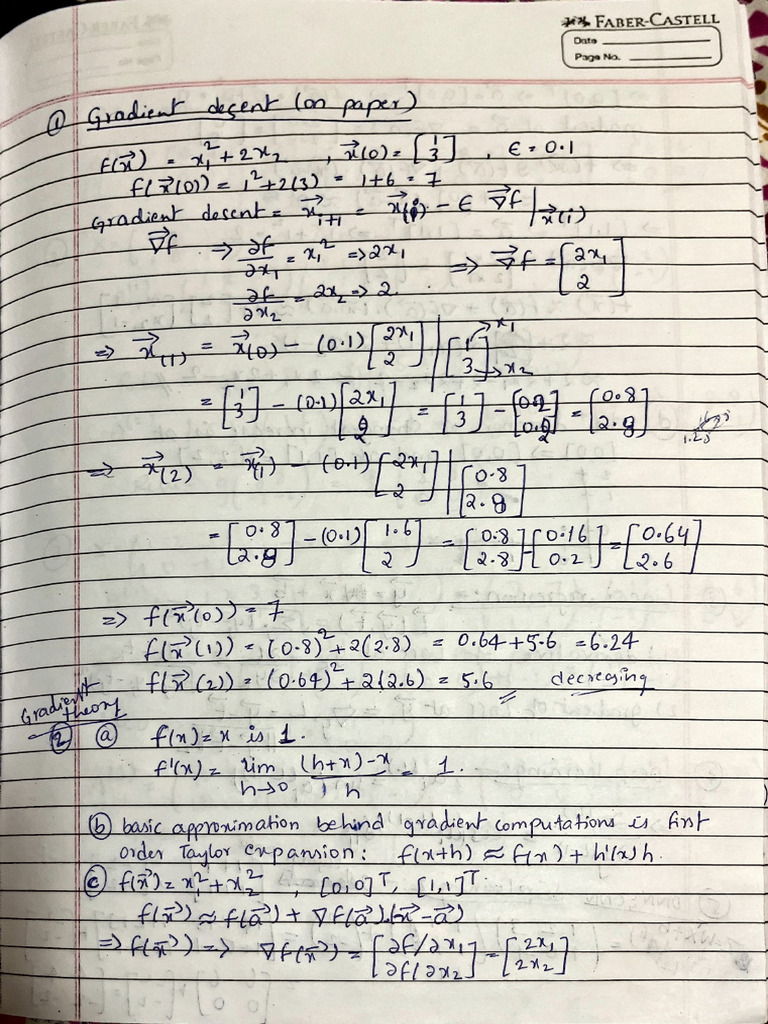 FABER-CASTELL
Date
Page No.
① Gradient descent (on paper)
f(x⃗) = x₁² + 2x₂ , x⃗(0) = [1 3] , ε = 0.1
f(x⃗(0)) = 1² + 2(3) = 1+6 = 7
Gradient descent = x⃗ᵢ₊₁ = x⃗(i) - ε ∇⃗f | x⃗(i)
∇⃗f ⇒ ∂f/∂x₁ = x₁² ⇒ 2x₁ ⇒ ∇⃗f = [2x₁ 2]
∂f/∂x₂ = 2x₂ ⇒ 2
⇒ x⃗(1) = x⃗(0) - (0.1) [2x₁ 2] | [1 3] → x₁ → x₂
= [1 3] - (0.1) [2x₁ 2] = [1 3] - [0.2 0.2] = [0.8 2.8]
1.25
⇒ x⃗(2) = x⃗(1) - (0.1) [2x₁ 2] | [0.8 2.8]
= [0.8 2.8] - (0.1) [1.6 2] = [0.8 2.8] - [0.16 0.2] = [0.64 2.6]
⇒ f(x⃗(0)) = 7
f(x⃗(1)) = (0.8)² + 2(2.8) = 0.64 + 5.6 = 6.24
f(x⃗(2)) = (0.64)² + 2(2.6) = 5.6 decreasing
Gradient theory
② ⓐ f(x) = x is 1.
f'(x) = lim h→0 (h+x)-x / h = 1.
ⓑ basic approximation behind gradient computations is first
order Taylor expansion: f(x+h) ≈ f(x) + h'(x)h.
ⓒ f(x⃗) = x₁² + x₂² , [0,0]ᵀ, [1,1]ᵀ.
f(x⃗) ≈ f(a⃗) + ∇f(a⃗).(x⃗ - a⃗)
⇒ f(x⃗) ⇒ ∇f(x⃗) = [∂f/∂x₁ ∂f/∂x₂] = [2x₁ 2x₂]